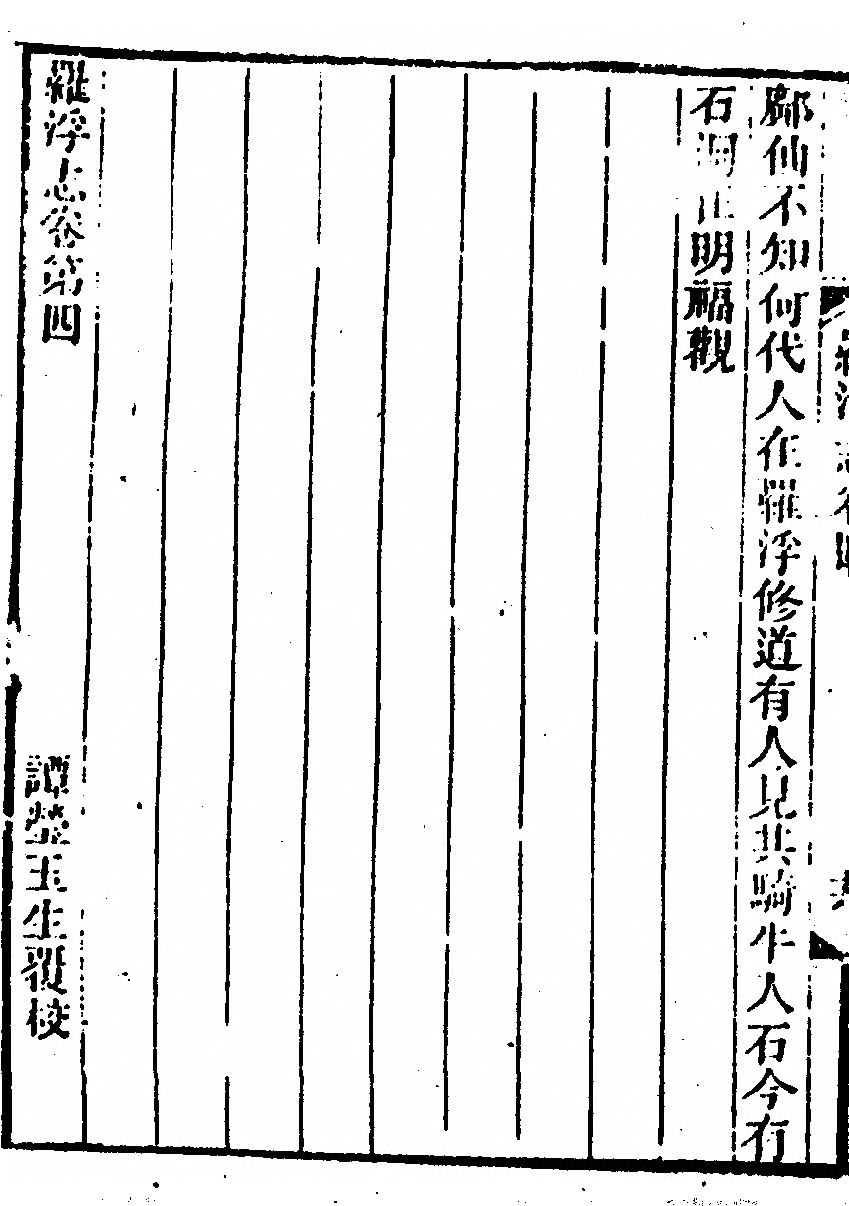 羅浮志卷四
鄺仙不知何代人在羅浮修道有人見其騎牛入石今有
石洞在明福觀
羅浮志卷第四
譚瑩玉生覆校